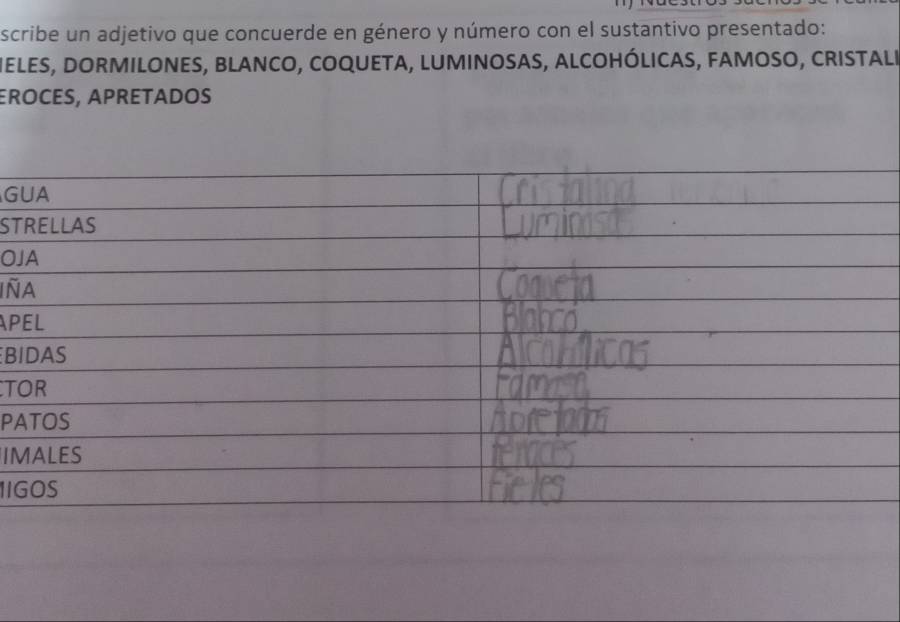 scribe un adjetivo que concuerde en género y número con el sustantivo presentado:
IELES, DORMILONES, BLANCO, COQUETA, LUMINOSAS, ALCOHÓLICAS, FAMOSO, CRISTALI
EROCES, APRETADOS
GUA Cristalina
STRELLAS Luminosas
OJA
IÑA Coqueta
APEL Blanco
EBIDAS Alcohólicas
CTOR Famoso
PATOS Apretados
IMALES feroces
MIGOS Fieles